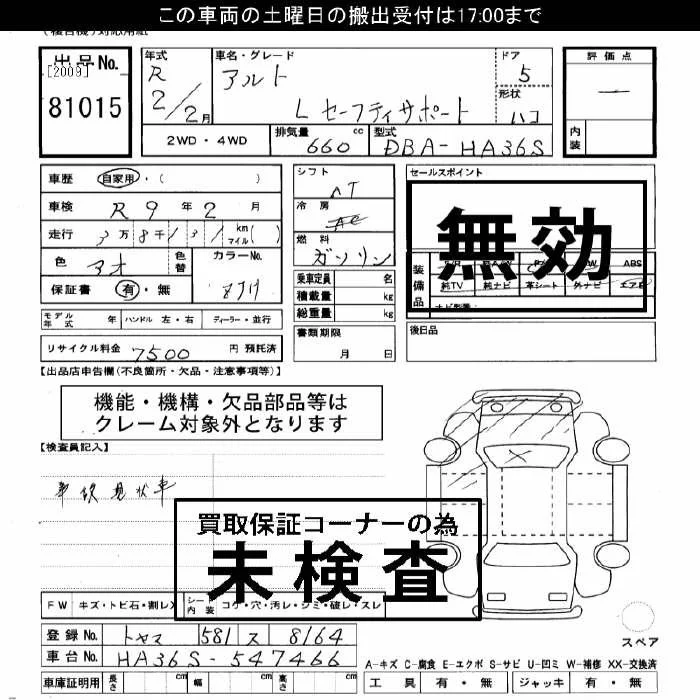 この車両の土曜日の搬出受付は17:00まで
出品No.
[2009]
81015
年式
R
2/2月
車名・グレード
アルト
L セーフティサポート
ドア
5
形状
ハコ
評価点
―
内装
2WD・4WD
排気量 660 cc
型式 DBA-HA36S
車歴 自家用・( )
車検 R 9 年 2 月
走行 3万8千131 km マイル( )
色 アオ
色替
カラーNo.
保証書 有・無
シフト AT
冷房 AC
燃料 ガソリン
乗車定員 名
積載量 kg
総重量 kg
書類期限
月 日
セールスポイント
無効
装備品
ABS
純TV 純ナビ 革シート 外ナビ エアB
後日品
モデル年式 年 ハンドル 左・右 ディーラー・並行
リサイクル料金 7500 円 預託済
【出品店申告欄(不良箇所・欠品・注意事項等)】
機能・機構・欠品部品等は
クレーム対象外となります
【検査員記入】
事故現状車
買取保証コーナーの為
未検査
FW キズ・トビ石・割レ
シート内装 コゲ・穴・汚レ・シミ・破レ・スレ
登録No. トヤマ 581 ス 8164
車台No. HA36S-547466
車庫証明用 長さ cm 幅 cm 高さ cm
スペア
A-キズ C-腐食 E-エクボ S-サビ U-凹ミ W-補修 XX-交換済
工具 有・無 ジャッキ 有・無